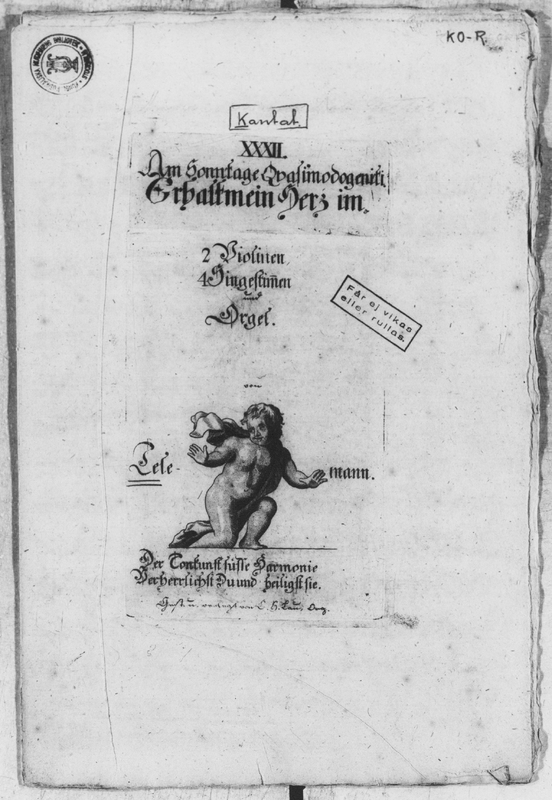 KO-R
Kantat
XXXII.
Am Sonntage Quasimodogeniti
Erhalt mein Herz im
2 Violinen
4 Singestim̄en
und
Orgel.
Får ej vikas
eller rullas.
von
Tele-
mann.
Der Tonkunst süsse Harmonie
Verherrlichst Du und heiligst sie.